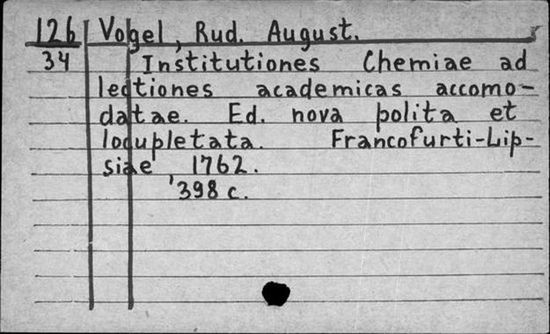 126 Vogel, Rud. August.
34 Institutiones Chemiae ad
lectiones academicas accomo-
datae. Ed. nova polita et
locupletata. Francofurti-Lip-
siae, 1762.
398 c.